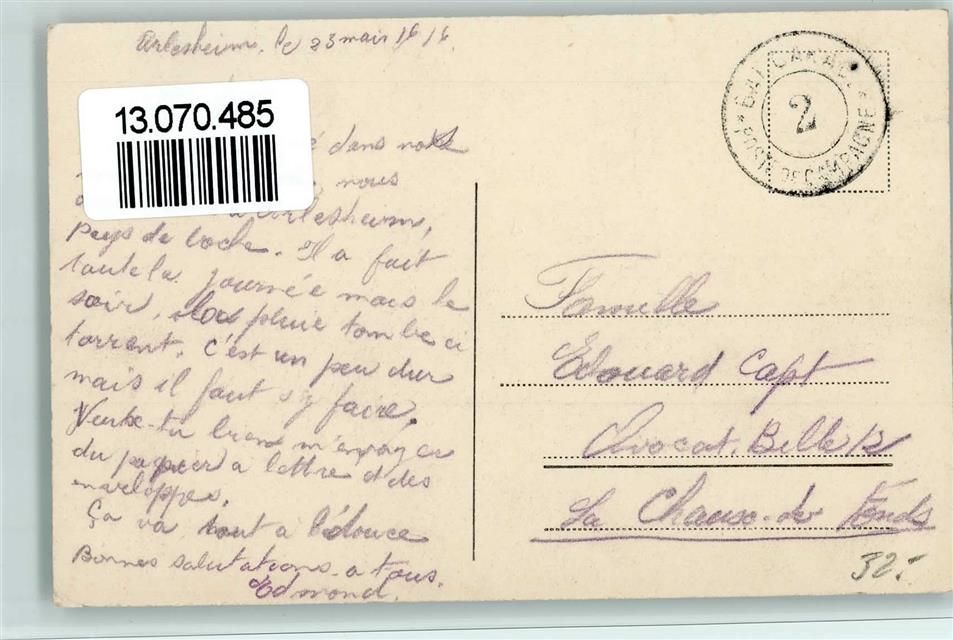 Arlesheim, le 23 mars 1616
13.070.485
dans
nous
a Arlesheim,
pays de loche. Il a fait
toute la journée mais le
soir, la pluie tombe ci
torrent. C'est un peu dur
mais il faut s'y faire.
Veux-tu bien m'envoyer
du papier a lettre et des
enveloppes.
Ça va tout a l'édouce
Bonnes salutations a tous.
Edmond.
BAT.
2
* POSTE DE CAMPAGNE *
Famille
Edouard Capt
Avocat-Bille 12
La Chaux-de Fonds
32.-